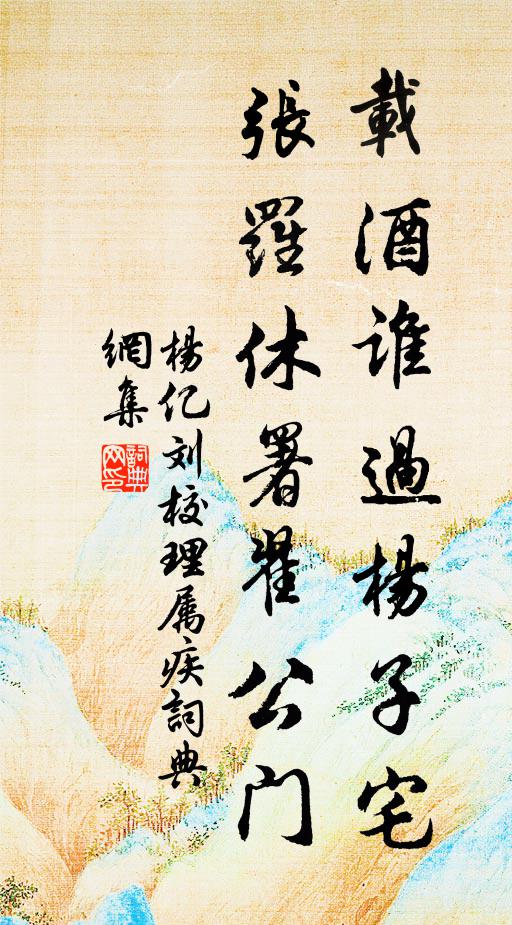 載酒誰過楊子宅
張羅休署翟公门
楊亿刘校理属疾詞典
網集
詞典
网印